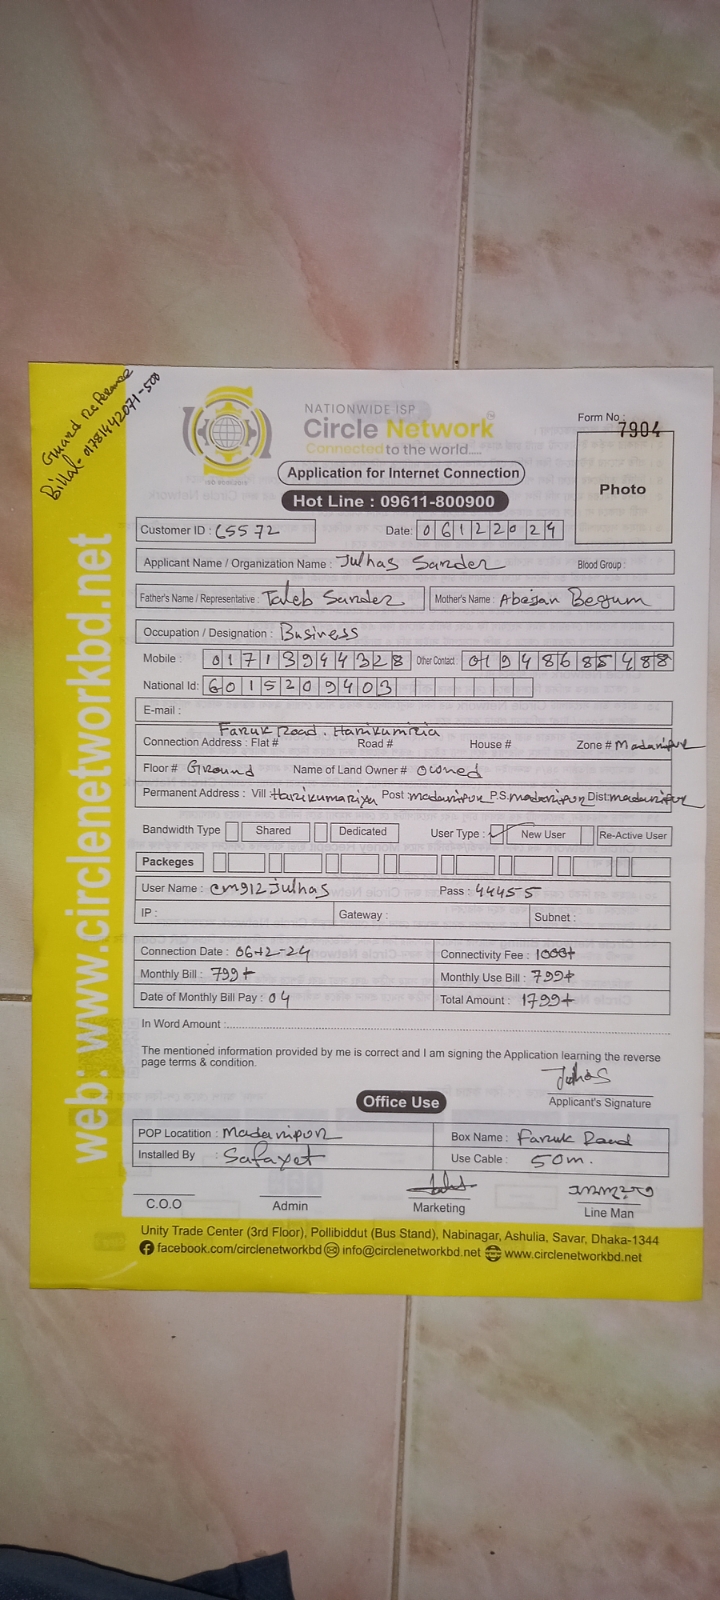 Guard Reference
Billal- 01781442071-500
NATIONWIDE ISP
Circle Network
Connected to the world....
Application for Internet Connection
Hot Line : 09611-800900
Form No :
7904
Photo
Customer ID : C5572
Date: 06122024
Applicant Name / Organization Name : Julhas Sarder
Blood Group :
Father's Name / Representative : Taleb Sarder
Mother's Name : Abejan Begum
Occupation / Designation : Business
Mobile : 01713944328 Other Contact : 01948685488
National Id: 6015209403
E-mail :
Faruk Road. Harikumiria
Connection Address : Flat # Road # House # Zone # Madaripur
Floor # Ground Name of Land Owner # owned
Permanent Address : Vill : Harikumariya Post: madaripur P.S. madaripur Dist: madaripur
Bandwidth Type Shared Dedicated User Type : ✓ New User Re-Active User
Packeges
User Name : cm912julhas Pass : 44455
IP : Gateway : Subnet :
Connection Date : 06-12-24 Connectivity Fee : 1000+
Monthly Bill : 799+ Monthly Use Bill : 799+
Date of Monthly Bill Pay : 04 Total Amount : 1799+
In Word Amount :
The mentioned information provided by me is correct and I am signing the Application learning the reverse
page terms & condition.
Julhas
Applicant's Signature
Office Use
POP Locatition : Madaripur Box Name : Faruk Road
Installed By : Safayet Use Cable : 50m.
C.O.O Admin Marketing Line Man
Unity Trade Center (3rd Floor), Pollibiddut (Bus Stand), Nabinagar, Ashulia, Savar, Dhaka-1344
facebook.com/circlenetworkbd info@circlenetworkbd.net www.circlenetworkbd.net
web: www.circlenetworkbd.net